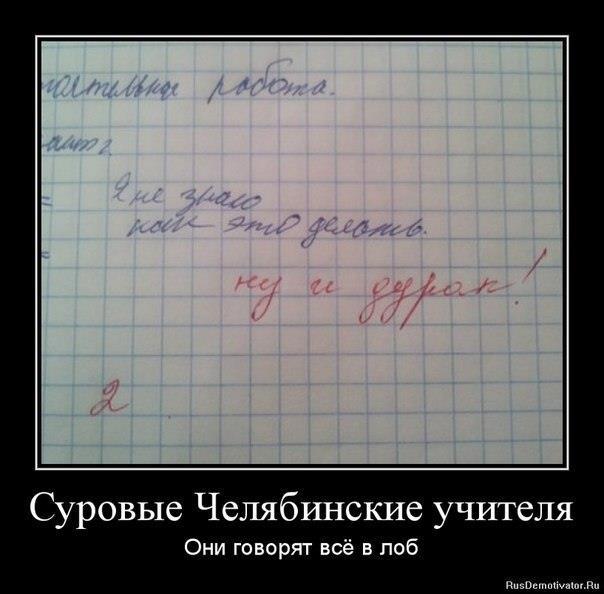 тоятельная работа.
иант2
=
Я не знаю
как это делать.
=
ну и дурак!
2
Суровые Челябинские учителя
Они говорят всё в лоб
RusDemotivator.Ru